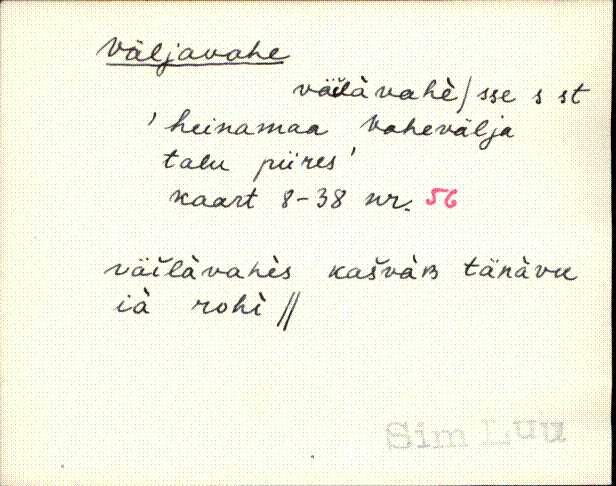 Väljavahe
väĭlàvahè/sse s st
'heinamaa Vahevälja
talu piires'
kaart 8-38 nr. 56
väĭlàvahès kašvàʙ tänàvu
ià rohì //
Sim Luu